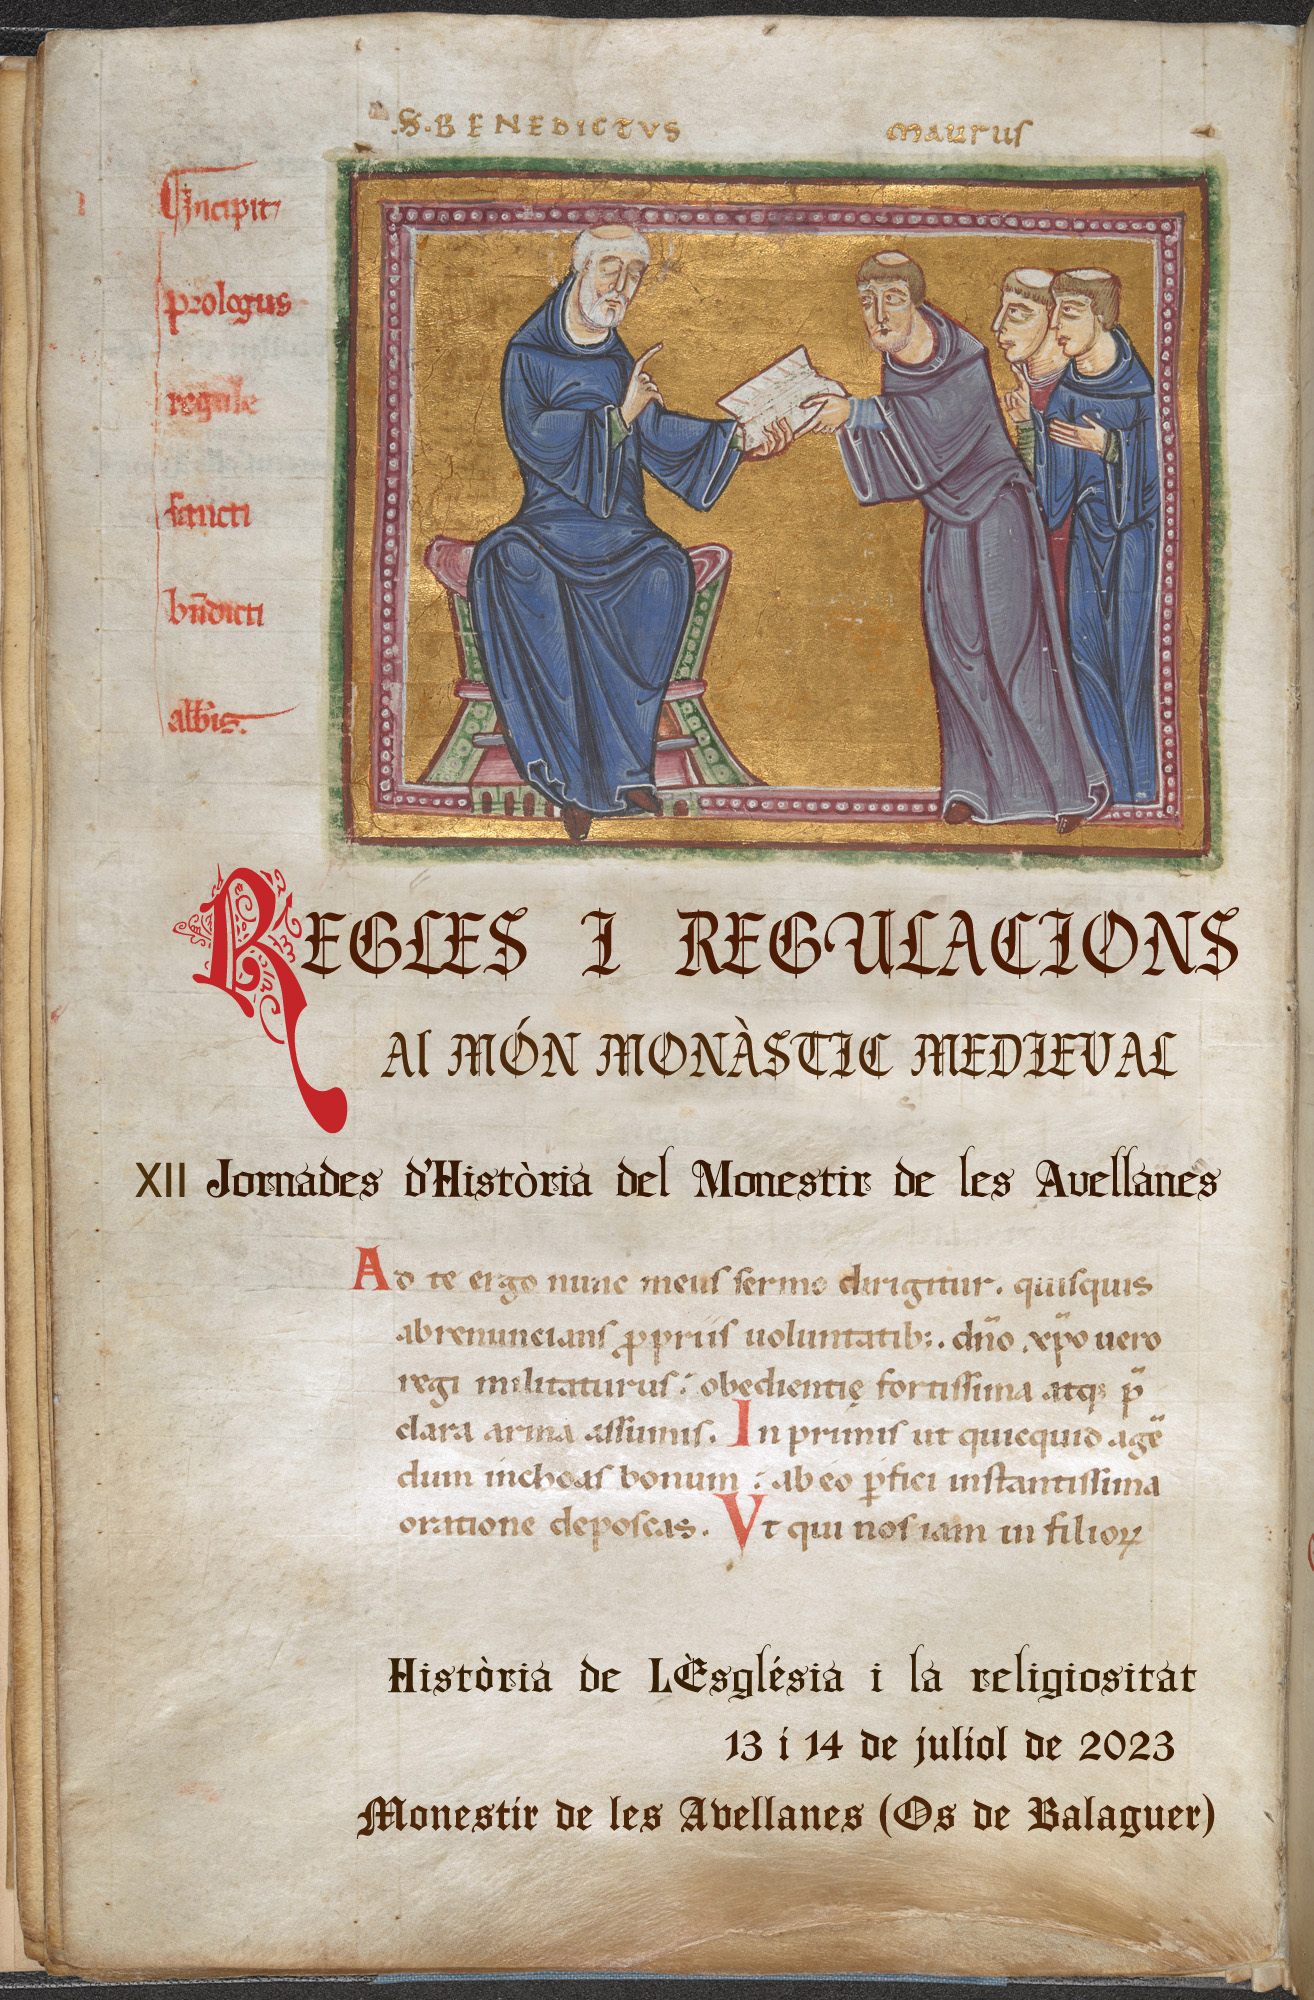 .S. BENEDICTVS maurus
Incipit
prologus
regule
sancti
bn̄dicti
abb̄is.
REGLES I REGULACIONS
Al MÓN MONÀSTIC MEDIEVAL
XII Jornades d'Història del Monestir de les Avellanes
Ad te ergo nunc meus sermo dirigitur. quisquis
abrenuncians ꝓpriis uoluntatib;. dn̄o xp̄o uero
regi militaturus; obedientię fortissima atq; p̄
clara arma assumis. In primis ut quicquid agē
dum inchoas bonum; ab eo ꝑfici instantissima
oratione deposcas. Vt qui nos iam in filioꝝ
Història de LÈsglésia i la religiositat
13 i 14 de juliol de 2023
Monestir de les Avellanes (Os de Balaguer)